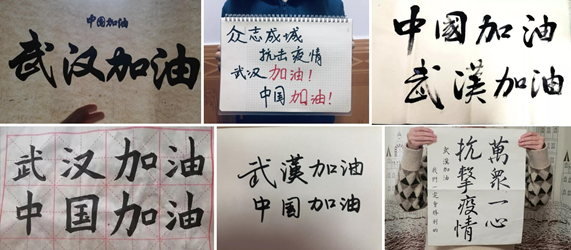 中国加油
武汉加油
众志成城
抗击疫情
武汉加油！
中国加油！
中國加油
武漢加油
武汉加油
中国加油
武漢加油
中国加油
萬眾一心
抗擊疫情
武漢加油
我們一定會勝利的